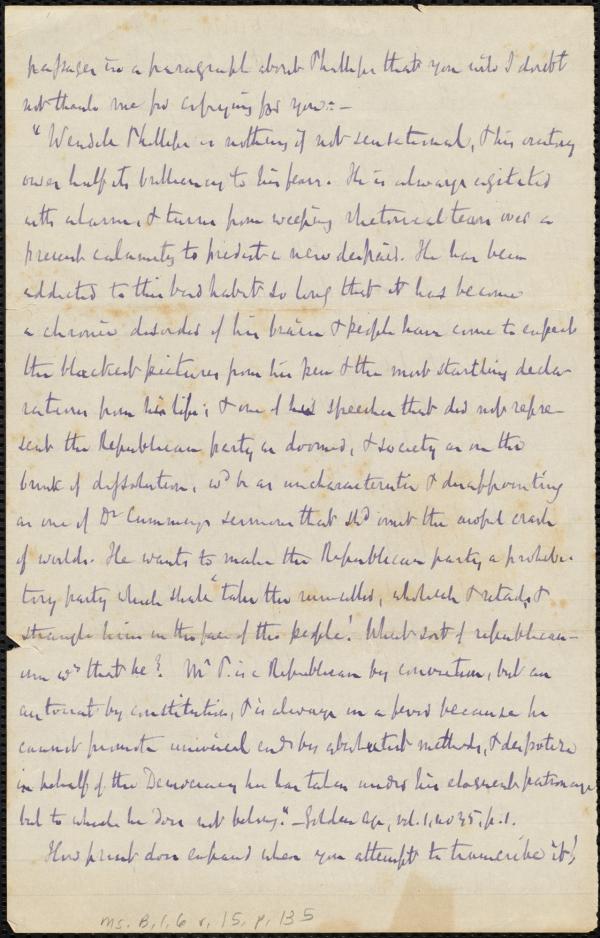 passages in a paragraph about Phillips that you will I doubt
not thank me for copying for you:—
"Wendell Phillips is nothing if not sensational, & his oratory
owes half its brilliancy to his fears. He is always agitated
with alarms, & turns from weeping rhetorical tears over a
present calamity to predict a new despair. He has been
addicted to this bad habit so long that it has become
a chronic disorder of his brain & people have come to expect
the blackest pictures from his pen & the most startling decla-
rations from his lips; & one of his speeches that did not repre-
sent the Republican party as doomed, & society as on the
brink of dissolution, wd be as uncharacteristic & disappointing
as one of Dr Cummings sermons that shd omit the awful crash
of worlds. He wants to make the Republican party a prohibi-
tory party which shall "take the rumseller, wholesale & retail, &
strangle him in the face of the people! What sort of republican-
ism wd that be? Mr P. is a Republican by conviction, but an
autocrat by constitution, & is always in a fever because he
cannot promote universal ends by absolutist methods, & despotize
in behalf of the Democracy he has taken under his eloquent patronage
but to which he does not belong." —Golden Age, vol. 1, no 35, p. 1.
How print does expand when you attempt to transcribe it!
Ms. B. 1. 6 v. 15, p. 135